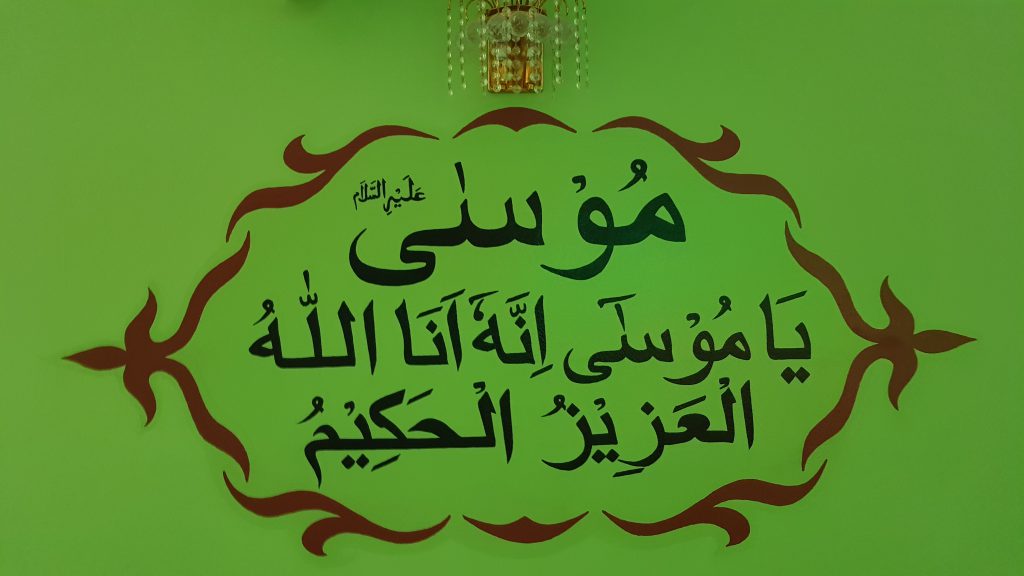 مُوْسٰى عَلَيْهِ السَّلَام
يَا مُوْسَٓى اِنَّهٗٓ اَنَا اللّٰهُ
الْعَزِيْزُ الْحَكِيْمُ